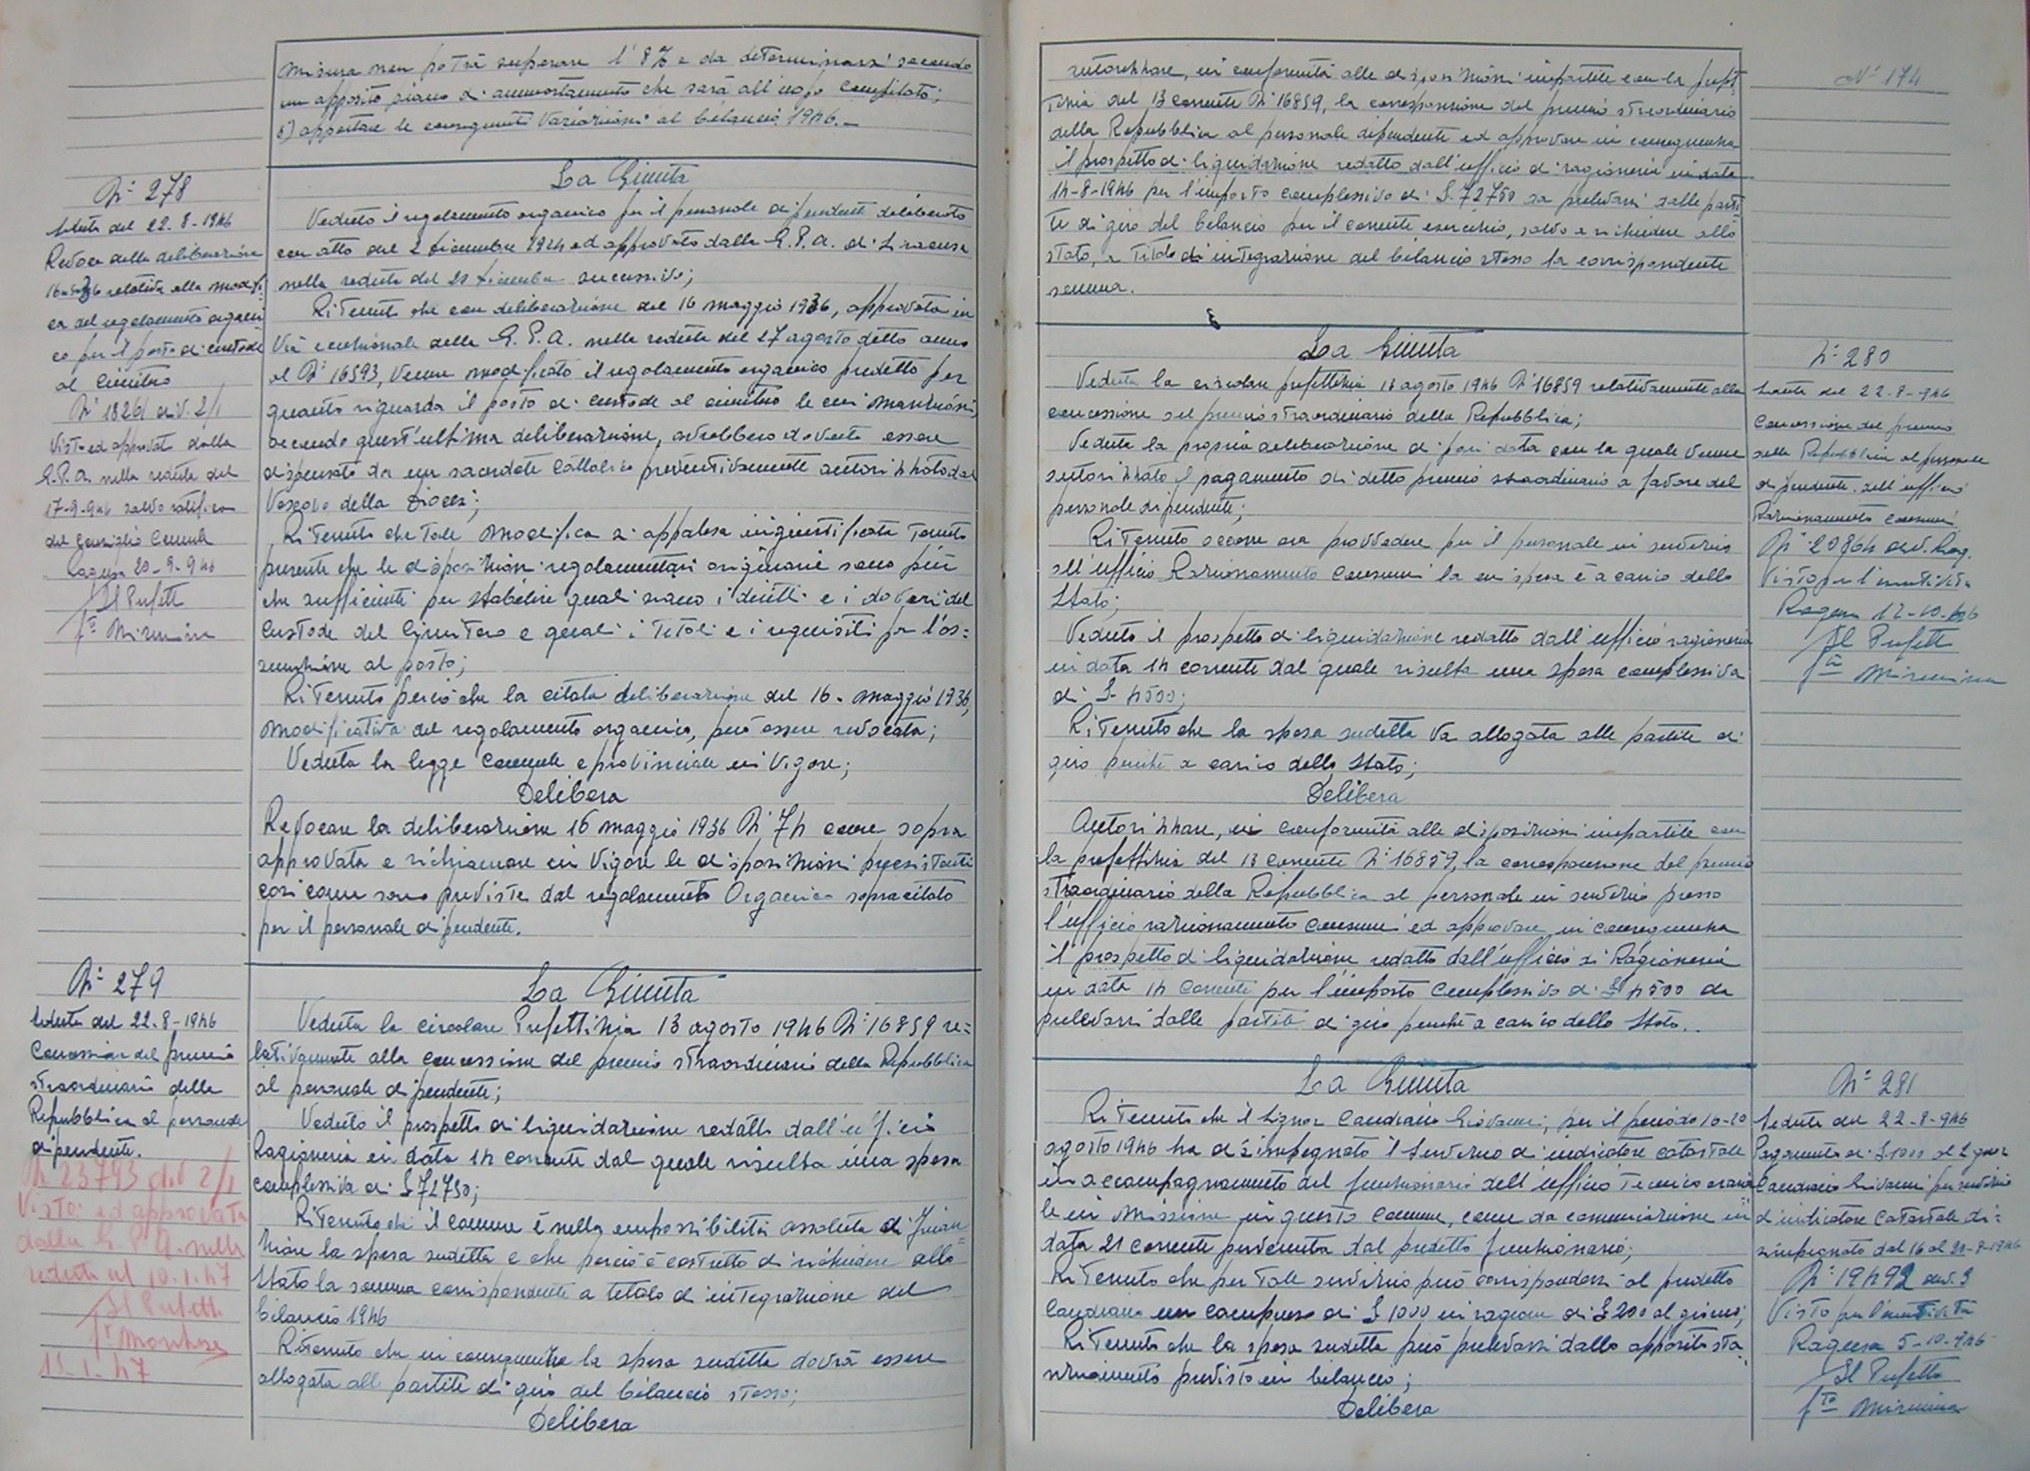 misura non potrà superare l'8% e da determinarsi secondo
un apposito piano di ammortamento che sarà all'uopo compilato;
5) apportare le conseguenti variazioni al bilancio 1946.—
N° 278
Seduta del 22-8-1946
Revoca della deliberazione
16-5-36 relativa alla modifi
ca del regolamento organi
co per il posto di custode
al Cimitero
N° 18261 div. 2/1
Visto ed approvato dalla
G.P.A. nella seduta del
17-9-946 salvo ratifica
del Consiglio Comunale
Ragusa 20-9-946
Il Prefetto
fto Mirmina
La Giunta
Veduto il regolamento organico per il personale dipendente deliberato
con atto del 2 dicembre 1924 ed approvato dalla G.P.A. di Siracusa
nella seduta del 20 dicembre successivo;
Ritenuto che con deliberazione del 16 maggio 1936, approvata in
via eccezionale della G.P.A. nella seduta del 27 agosto detto anno
al N° 16593, venne modificato il regolamento organico predetto per
quanto riguarda il posto di custode al cimitero le cui mansioni,
secondo quest'ultima deliberazione, avrebbero dovuto essere
disimpegnate da un sacerdote Cattolico preventivamente autorizzato dal
Vescovo della Diocesi;
Ritenuto che tale modifica si appalesa ingiustificata tenuto
presente che le disposizioni regolamentari originarie sono più
che sufficienti per stabilire quali siano i diritti e i doveri del
Custode del Cimitero e quali i titoli e i requisiti per l'as=
sunzione al posto;
Ritenuto perciò che la citata deliberazione del 16 maggio 1936,
modificativa del regolamento organico, può essere revocata;
Veduta la legge Comunale e provinciale in vigore;
Delibera
Revocare la deliberazione 16 maggio 1936 N° 74 come sopra
approvata e richiamare in vigore le disposizioni preesistenti
così come sono previste dal regolamento Organico sopracitato
per il personale dipendente.
N° 279
Seduta del 22-8-1946
Concessione del premio
straordinario della
Repubblica al personale
dipendente.
N 23793 div 2/1
Visto: ed approvata
dalla G.P.A. nella
seduta del 10.1.47
Il Prefetto
fto
13-1-47
La Giunta
Veduta la circolare Prefettizia 13 agosto 1946 N° 16859 re=
lativamente alla concessione del premio straordinario della Repubblica
al personale dipendente;
Veduto il prospetto di liquidazione redatto dall'ufficio
Ragioneria in data 14 corrente dal quale risulta una spesa
complessiva di £ 72750;
Ritenuto che il comune è nella impossibilità assoluta di finan=
ziare la spesa sudetta e che perciò è costretto di richiedere allo
Stato la somma corrispondente a titolo d'integrazione del
bilancio 1946
Ritenuto che in conseguenza la spesa sudetta dovrà essere
allogata alle partite di giro del bilancio stesso;
Delibera
N° 174
autorizzare, in conformità alle disposizioni impartite con la prefet
tizia del 13 corrente N° 16859, la corresponsione del premio straordinario
della Repubblica al personale dipendente ed approvare in conseguenza
il prospetto di liquidazione redatto dall'ufficio di ragioneria in data
14-8-1946 per l'importo complessivo di £. 72750 da prelevarsi dalle parti
te di giro del bilancio per il corrente esercizio, salvo a richiedere allo
stato, a titolo di integrazione del bilancio stesso la corrispondente
somma.
La Giunta
Veduta la circolare prefettizia 13 agosto 1946 N° 16859 relativamente alla
concessione del premio straordinario della Repubblica;
Veduta la propria deliberazione di pari data con la quale venne
autorizzato il pagamento di detto premio straordinario a favore del
personale dipendente;
Ritenuto occorre ora provvedere per il personale in servizio
all'ufficio Razionamento Consumi la cui spesa è a carico dello
Stato;
Veduto il prospetto di liquidazione redatto dall'ufficio ragioneria
in data 14 corrente dal quale risulta una spesa complessiva
di £ 4500;
Ritenuto che la spesa sudetta va allogata alle partite di
giro perché a carico dello Stato;
Delibera
Autorizzare, in conformità alle disposizioni impartite con
la prefettizia del 13 corrente N° 16859, la corresponsione del premio
straordinario della Repubblica al personale in servizio presso
l'ufficio razionamento consumi ed approvare in conseguenza
il prospetto di liquidazione redatto dall'ufficio di Ragioneria
in data 14 corrente per l'importo complessivo di £ 4500 da
prelevarsi dalle partite di giro perché a carico dello Stato.
N° 280
Seduta del 22-8-946
Concessione del premio
della Repubblica al personale
dipendente dell'ufficio
Razionamento consumi.
N° 20864 div. Rag.
Visto per l'esecutività
Ragusa 12-10-946
Il Prefetto
fto Mirmina
La Giunta
Ritenuto che il Signor Candiano Giovanni, per il periodo 16-20
agosto 1946 ha disimpegnato il servizio d'indicatore catastale
in accompagnamento del funzionario dell'ufficio Tecnico eraria
le in missione in questo Comune, come da comunicazione in
data 21 corrente pervenuta dal predetto funzionario;
Ritenuto che per tale servizio può corrispondersi al predetto
Candiano un compenso di £ 1000 in ragione di £ 200 al giorno;
Ritenuto che la spesa sudetta può prelevarsi dallo apposito sta
nziamento previsto in bilancio;
Delibera
N° 281
Seduta del 22-8-946
Pagamento di £ 1000 al Signor
Candiano Giovanni per servizio
d'indicatore Catastale di=
simpegnato dal 16 al 20-8-1946
N° 19492 div. 3
Visto per l'esecutività
Ragusa 5-10-946
Il Prefetto
fto Mirmina